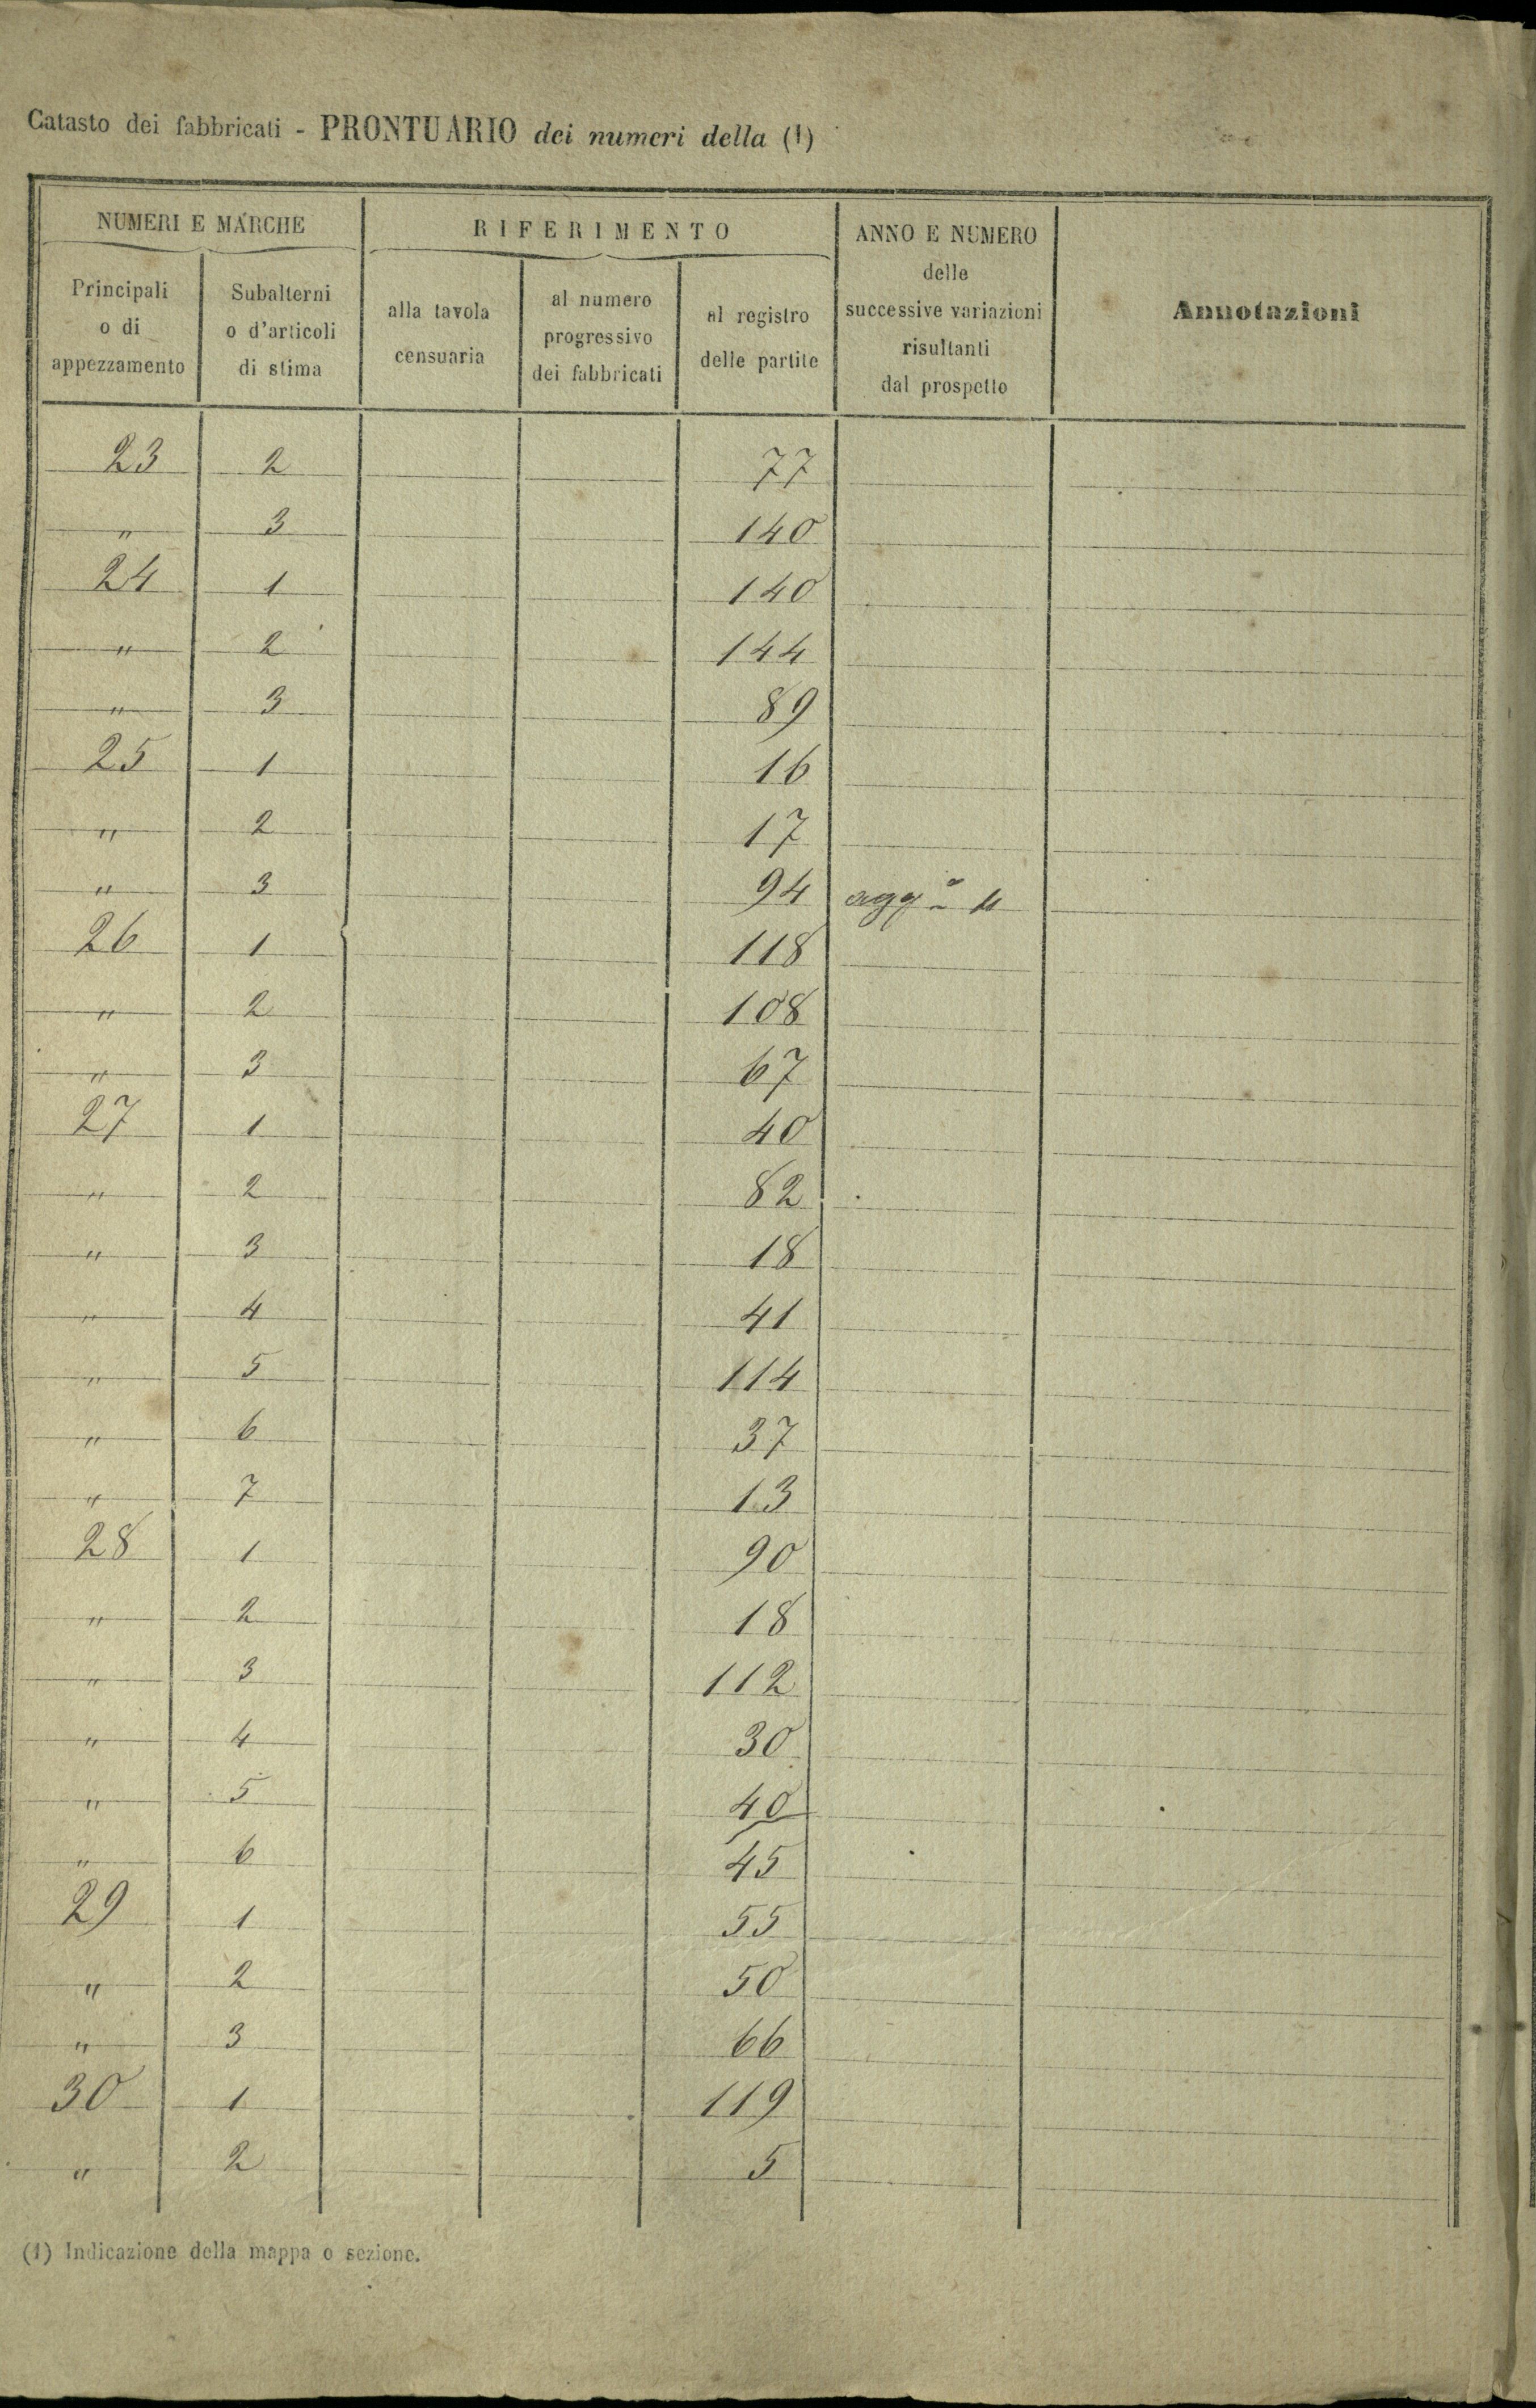 Catasto dei fabbricati - PRONTUARIO dei numeri della (1)
NUMERI E MARCHE
RIFERIMENTO
ANNO E NUMERO
delle
successive variazioni
risultanti
dal prospetto
Annotazioni
Principali
o di
appezzamento
Subalterni
o d'articoli
di stima
alla tavola
censuaria
al numero
progressivo
dei fabbricati
al registro
delle partite
23 2 77
" 3 140
24 1 140
" 2 144
" 3 89
25 1 16
" 2 17
" 3 94
26 1 118
" 2 108
" 3 67
27 1 40
" 2 82
" 3 18
" 4 41
" 5 114
" 6 37
" 7 13
28 1 90
" 2 18
" 3 112
" 4 30
" 5 40
" 6 45
29 1 55
" 2 50
" 3 66
30 1 119
" 2 5
(1) Indicazione della mappa o sezione.